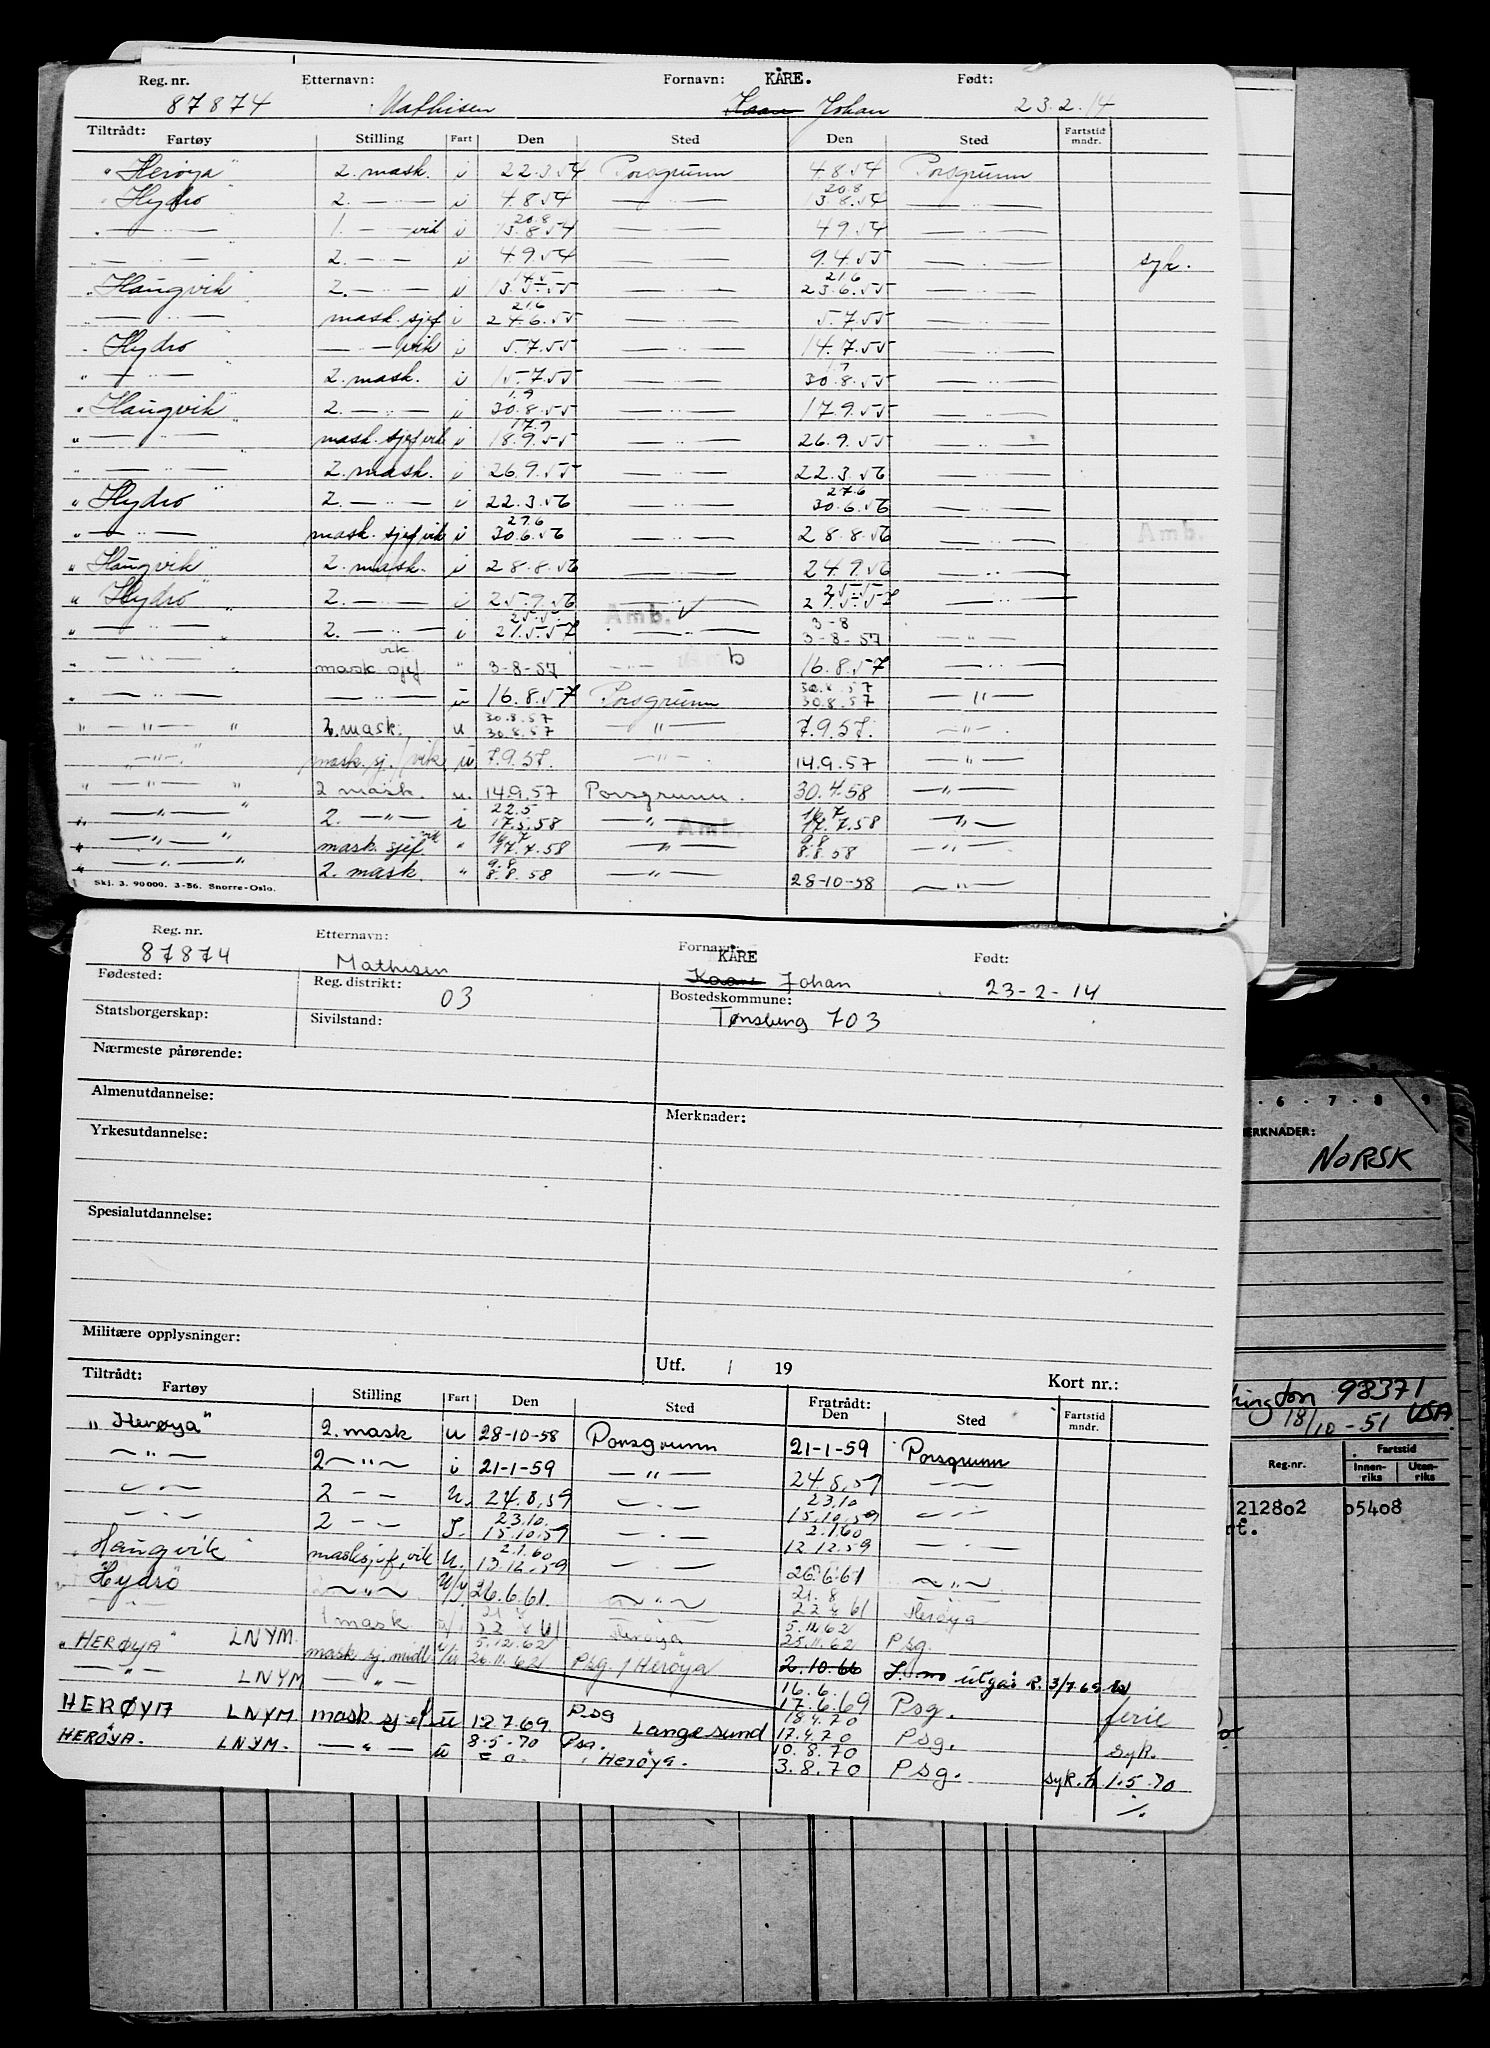 Reg. nr. Etternavn: Fornavn: KÅRE. Født:
87874 Mathisen Johan 23.2.14
Tiltrådt:
Fartøy Stilling Fart Den Sted Den Sted Fartstid mndr.
"Herøya" 2. mask. i 22.3.54 Porsgrunn 4.8.54 Porsgrunn
20.8
"Hydro 2. — " — i 4.8.54 — " — 13.8.54 — " —
20.8
" — " — 1. — " — vik i 13.8.54 — " — 4.9.54 — " —
— " — 2. — " — i 4.9.54 — " — 9.4.55 — " — syk.
14.5 21.6
"Haugvik" 2. — " — i 13.5.55 — " — 23.6.55 — " —
21.6
— " — mask. sjef i 24.6.55 — " — 5.7.55 — " —
" Hydro — " — vik i 5.7.55 — " — 14.7.55 — " —
" — " — 2. mask. i 15.7.55 — " — 30.8.55 — " —
1.9
"Haugvik" 2. — " — " 30.8.55 — " — 17.9.55 — " —
17.9
" — " — mask. sjef vik i 18.9.55 — " — 26.9.55 — " —
" — " — 2. mask. i 26.9.55 — " — 22.3.56 — " —
27.6
"Hydro" 2. — " — i 22.3.56 — " — 30.6.56 — " —
27.6
" — " — mask. sjef vik i 30.6.56 — " — 28.8.56 — " — Amb.
"Haugvik" 2. mask. i 28.8.56 — " — 24.9.56 — " —
25.5
"Hydro" 2. — " — i 25.9.56 — " — 27.5.57 — " —
25.5. Amb. 3-8
" — " — 2. — " — i 27.5.57 — " — 3-8-57 — " —
vik
" — " — mask sjef " 3-8-57 — " — Amb 16.8.57 — " —
30.8.57
" — " — — " — u 16.8.57 Porsgrunn 30.8.57 — " —
30.8.57
" — " — " 2. mask. u 30.8.57 — " — 7.9.57. — " —
— " — mask. sj. /vik u 7.9.57. — " — 14.9.57 — " —
" — " — " 2 mask. u. 14.9.57 Porsgrunn. 30.4.58 — " —
22.5 16.7
" — " — " 2. — " — i 17.5.58 — " — Amb. 17.7.58 — " —
16.7 9.8
" — " — " mask. sjef vik " 17.7.58 — " — 8.8.58 — " —
9.8
" — " — " 2. mask. " 8.8.58 — " — 28-10-58 — " —
Skj. 3. 90000. 3-56. Snorre-Oslo.
Reg. nr. Etternavn: Fornavn: KÅRE Født:
87874 Mathisen Johan 23-2-14
Fødested: Reg. distrikt: 03 Bostedskommune:
Statsborgerskap: Sivilstand: Tønsberg 703
Nærmeste pårørende:
Almenutdannelse:
Merknader:
Yrkesutdannelse:
Spesialutdannelse:
Militære opplysninger:
Utf. / 19 Kort nr.:
Tiltrådt: Fratrådt:
Fartøy Stilling Fart Den Sted Den Sted Fartstid mndr.
"Herøya" 2. mask u 28-10-58 Porsgrunn 21-1-59 Porsgrunn
— " — 2 — " — i 21-1-59 — " — 24.8.59 — " —
23.10
— " — 2 — " — U. 24.8.59 — " — 15.10.59 — " —
23.10. 2.1.60
— " — 2 — " — I. 15.10.59 — " — 12.12.59 — " —
2.1.60
Haugvik masksjef, vik U. 13.12.59 — " — 26.6.61 — " —
21.8
Hydro — " — U/i. 26.6.61. — " — 22.8.61 Herøya
1 mask Herøya 5.12.62
25.11.62 Psg.
"HERØYA" LNYM. mask sj. midl 5.12.62
26.11.62 Psg. / Herøya 2.10.66 utgår R. 3/7.69
— " — LNYM — " — 16.6.
17.6.69 Psg. ferie
HERØYA LNYM mask. sjef u 12.7.69. Psg Langesund 18.4.70
17.4.70 Psg. syk.
HERØYA. LNYM. — " — u 8.5.70 Psg. 10.8.70
Herøya. 3.8.70 Psg. syk. 1.5.70
6 . 7 . 8 . 9
MERKNADER:
NORSK
98371
18/10-51 USA
Reg.nr. Fartstid
Innenriks Utenriks
212802 05408